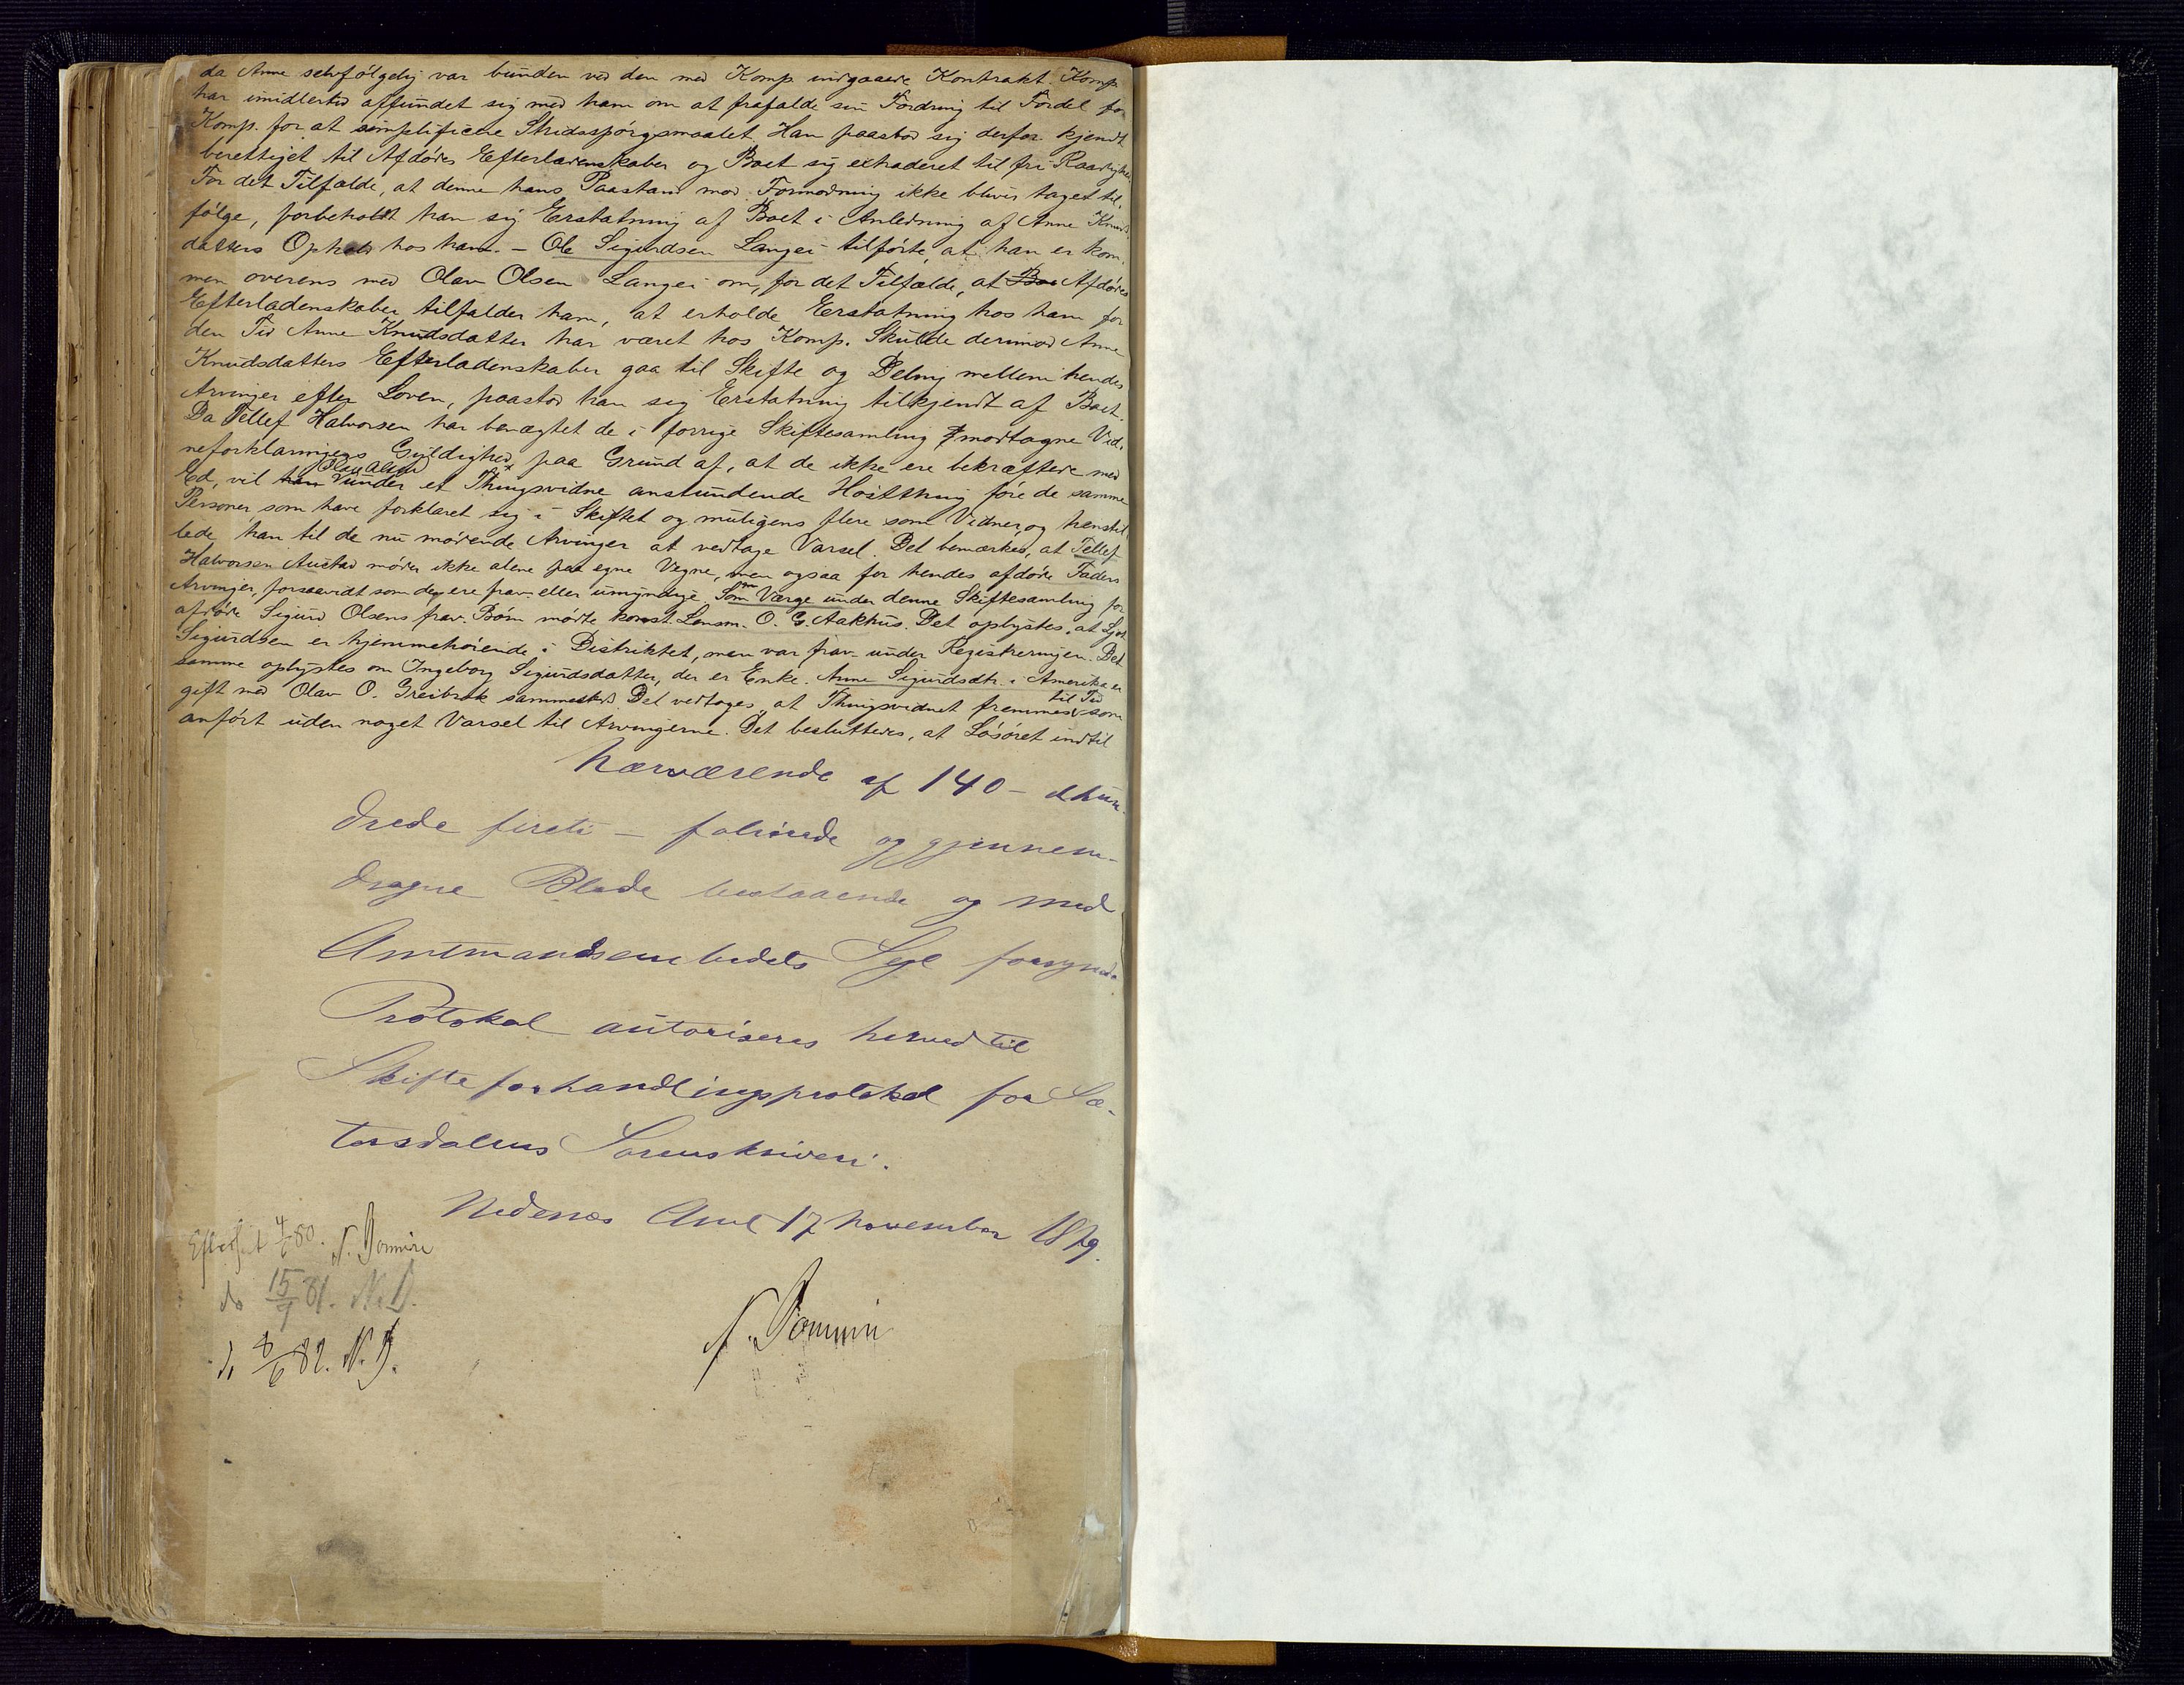 da Anne selvfølgelig var bunden ved den med Komp. indgaaede Kontrakt. Komp.
har imidlertid affundet sig med ham om at frafalde sin Fordring til Fordel for
Komp. for at simplificere Stridsspørgsmaalet. Han paastod sig derfor kjendt
berettiget til Afdødes Efterladenskaber og Boet sig extraderet til fri Raadighed
For det Tilfælde, at denne hans Paastand mod Formodning ikke bliver taget til-
følge, forbeholdt han sig Erstatning af Boet i Anledning af Anne Knuds-
datters Ophold hos ham. - Ole Sigurdsen Langei tilførte, at han er kom-
men overens med Olav Olsen Langei om, for det Tilfælde, at Boe Afdødes
Efterladenskaber tilfalder ham, at erholde Erstatning hos ham for
den Tid Anne Knudsdatter har været hos Komp. Skulde derimod Anne
Knudsdatters Efterladenskaber gaa til Skifte og Deling mellem hendes
Arvinger efter Loven, paastod han sig Erstatning tilkjendt af Boet.
Da Tellef Halvorsen har benægtet de i forrige Skiftesamling modtagne Vid-
neforklaringers Gyldighed paa Grund af, at de ikke ere bekræftede med
Ed, vil han Olav Olsen under et Thingsvidne anstundende Høstthing føre de samme
Personer, som have forklaret sig i Skiftet og muligens flere som Vidner, og henstil-
lede han til de nu mødende Arvinger at vedtage Varsel. Det bemærkes, at Tellef
Halvorsen Austad møder ikke alene paa egne Vegne, men ogsaa for hendes afdøde Faders
Arvinger, forsaavidt som de ere frav. eller umyndige. Som Værge under denne Skiftesamling for
afdøde Sigurd Olsens frav. Børn mødte konst. Lensm. O. G. Aakhus. Det oplystes, at
Sigurdsen er hjemmehørende i Distriktet, men var frav. under Registreringen. Det
samme oplystes om Ingeborg Sigurdsdatter, der er Enke. Anne Sigurdsdtr. i Amerika er
gift med Olav O. Greibrok sammesteds. Det vedtoges, at Thingsvidnet fremmes til Tid som
anført uden noget Varsel til Arvingerne. Det besluttedes, at Løsøret indtil
Nærværende af 140 - et hun-
drede fireti - folierede og gjennem-
dragne Blade bestaaende og med
Amtmandsembedets Segl forsynede
Protokol autoriseres herved til
Skifteforhandlingsprotokol for Sæ-
tersdalens Sorenskriveri.
Nedenes Amt 17 November 1879.
N. Dommin
Efterseet 4/6 80. N. Dommin
do 15/9 81. N. D.
do 8/6 82. N. D.